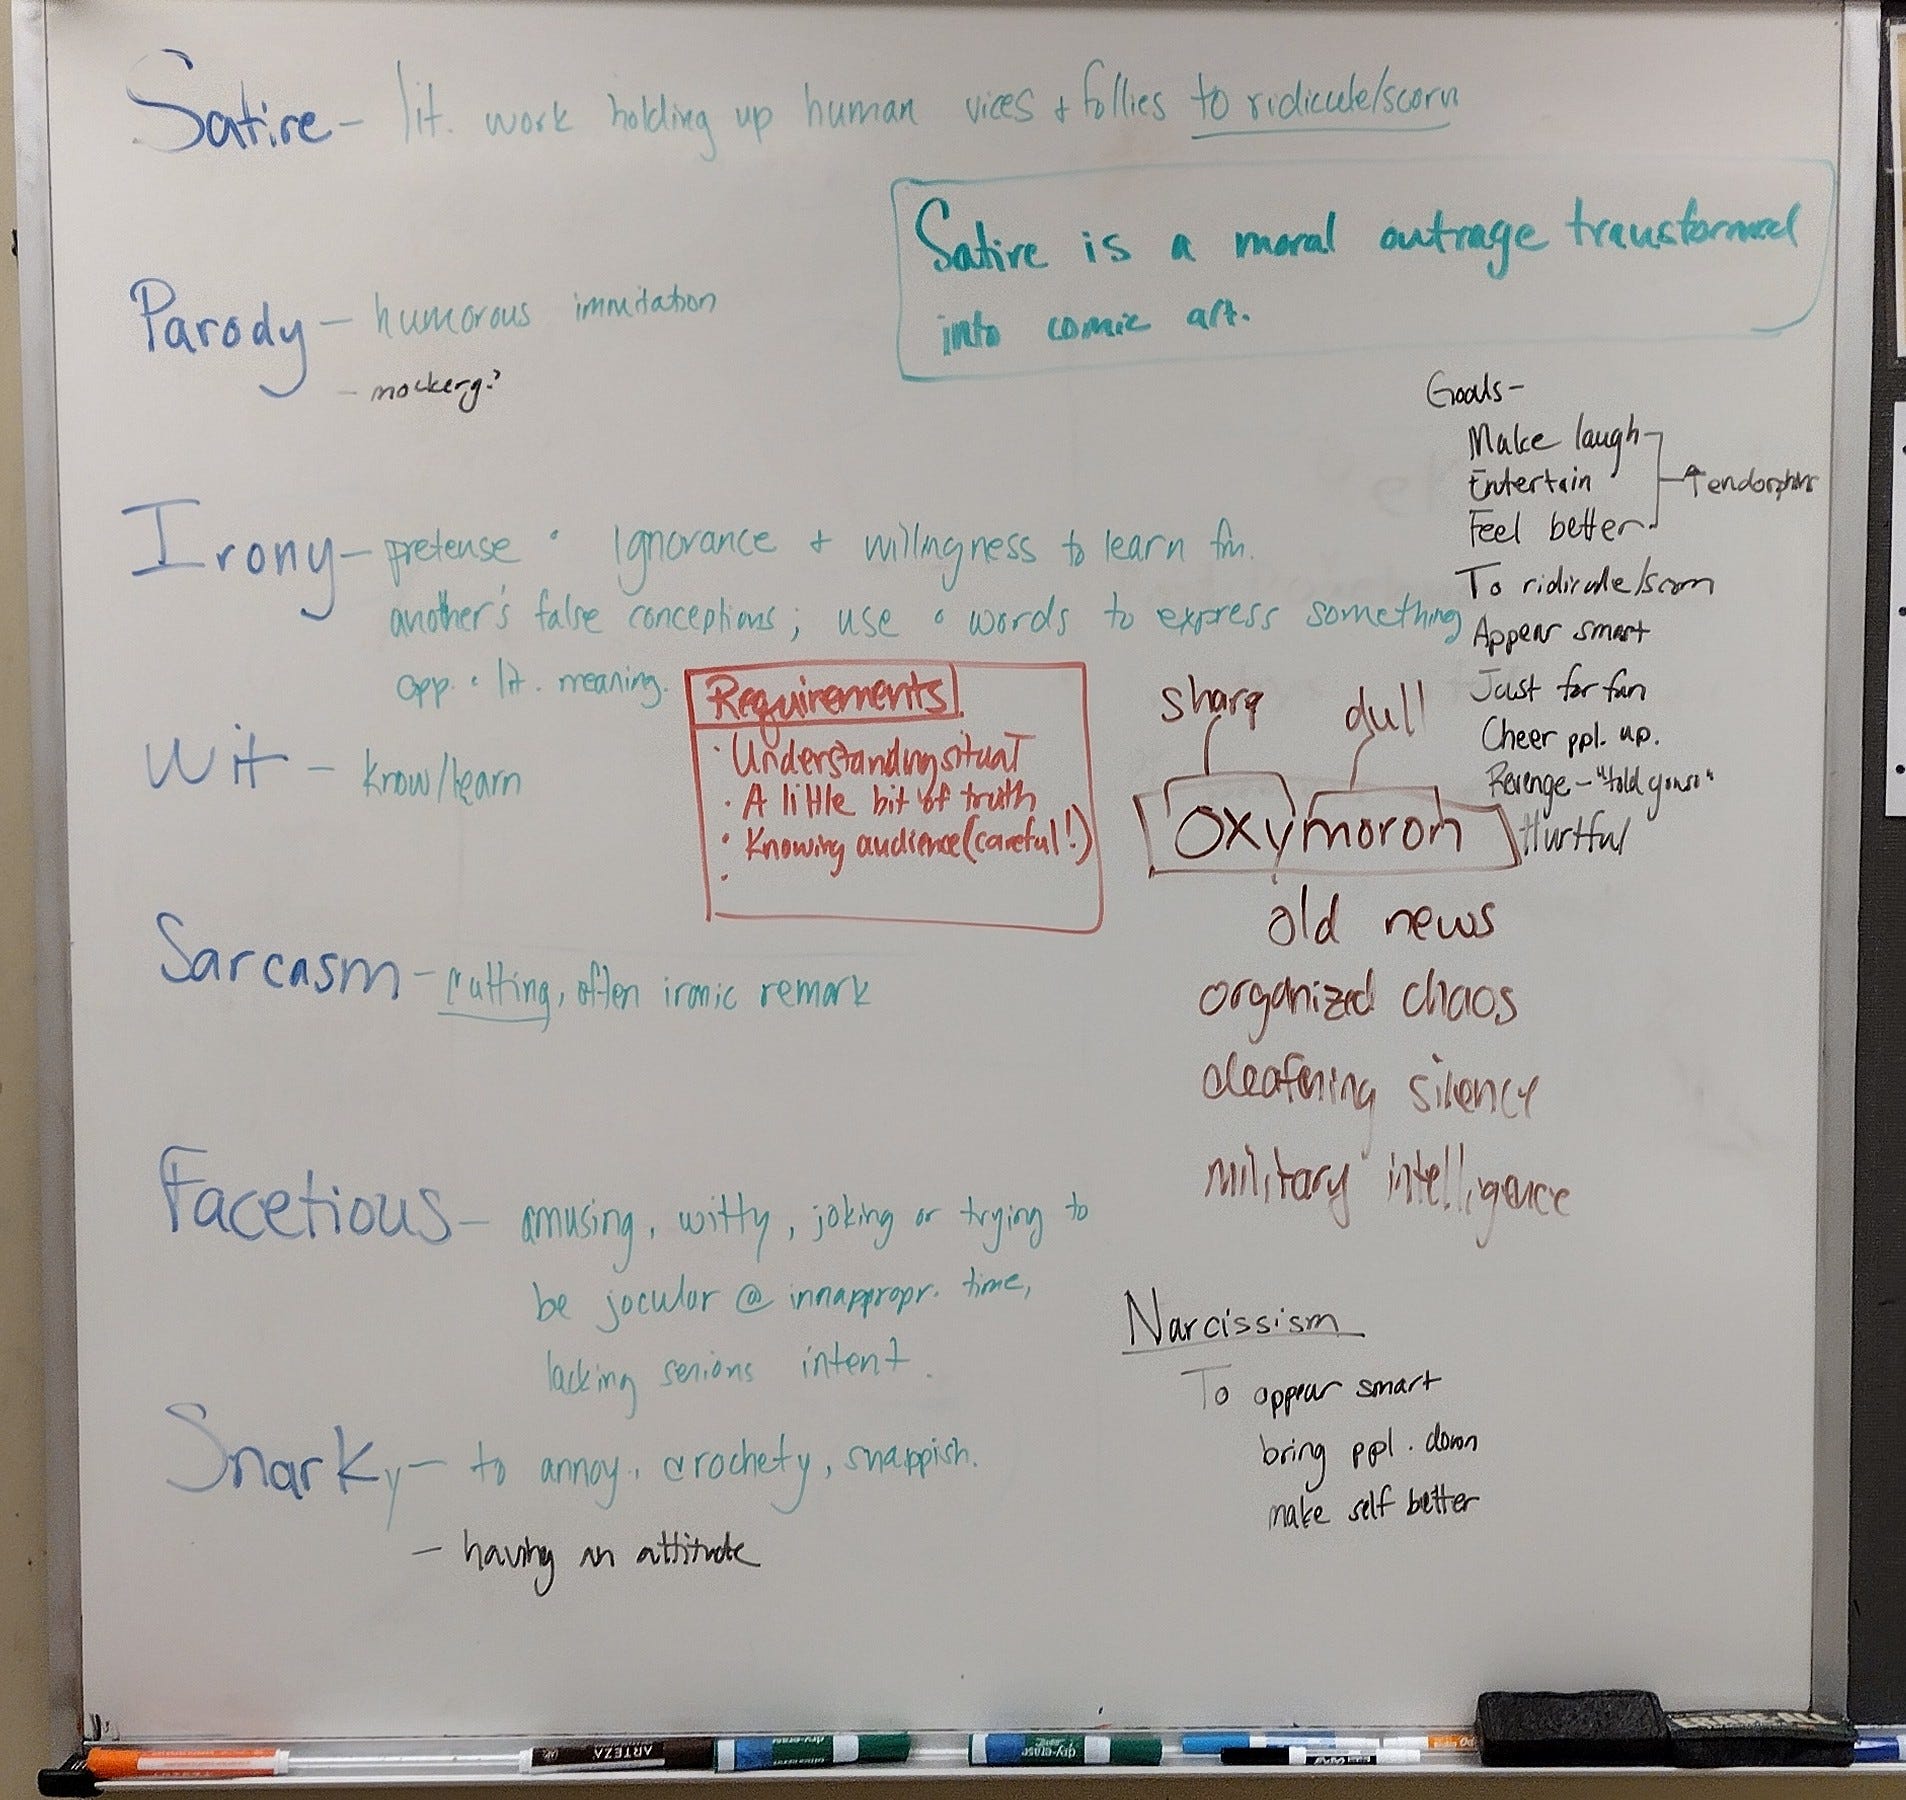 Satire - lit. work holding up human vices + follies to ridicule/scorn
Satire is a moral outrage transformed
into comic art.
Parody - humorous immitation
- mockery?
Irony - pretense ° Ignorance + willingness to learn fm.
another's false conceptions; use ° words to express something
opp. ° lit. meaning.
Wit - know/learn
Requirements
· Understanding situat
· A little bit of truth
· Knowing audience (careful!)
·
Goals -
Make laugh
Entertain
Feel better
↑ endorphins
To ridicule/scorn
Appear smart
Just for fun
Cheer ppl. up.
Revenge - "told youso"
Hurtful
sharp dull
oxymoron
old news
organized chaos
deafening silence
military intelligence
Sarcasm - cutting, often ironic remark
Facetious - amusing, witty, joking or trying to
be jocular @ innappropr. time,
lacking serious intent.
Snarky - to annoy, crochety, snappish.
- having an attitude
Narcissism
To appear smart
bring ppl. down
make self better
ARTEZA
dry-erase
dry-erase